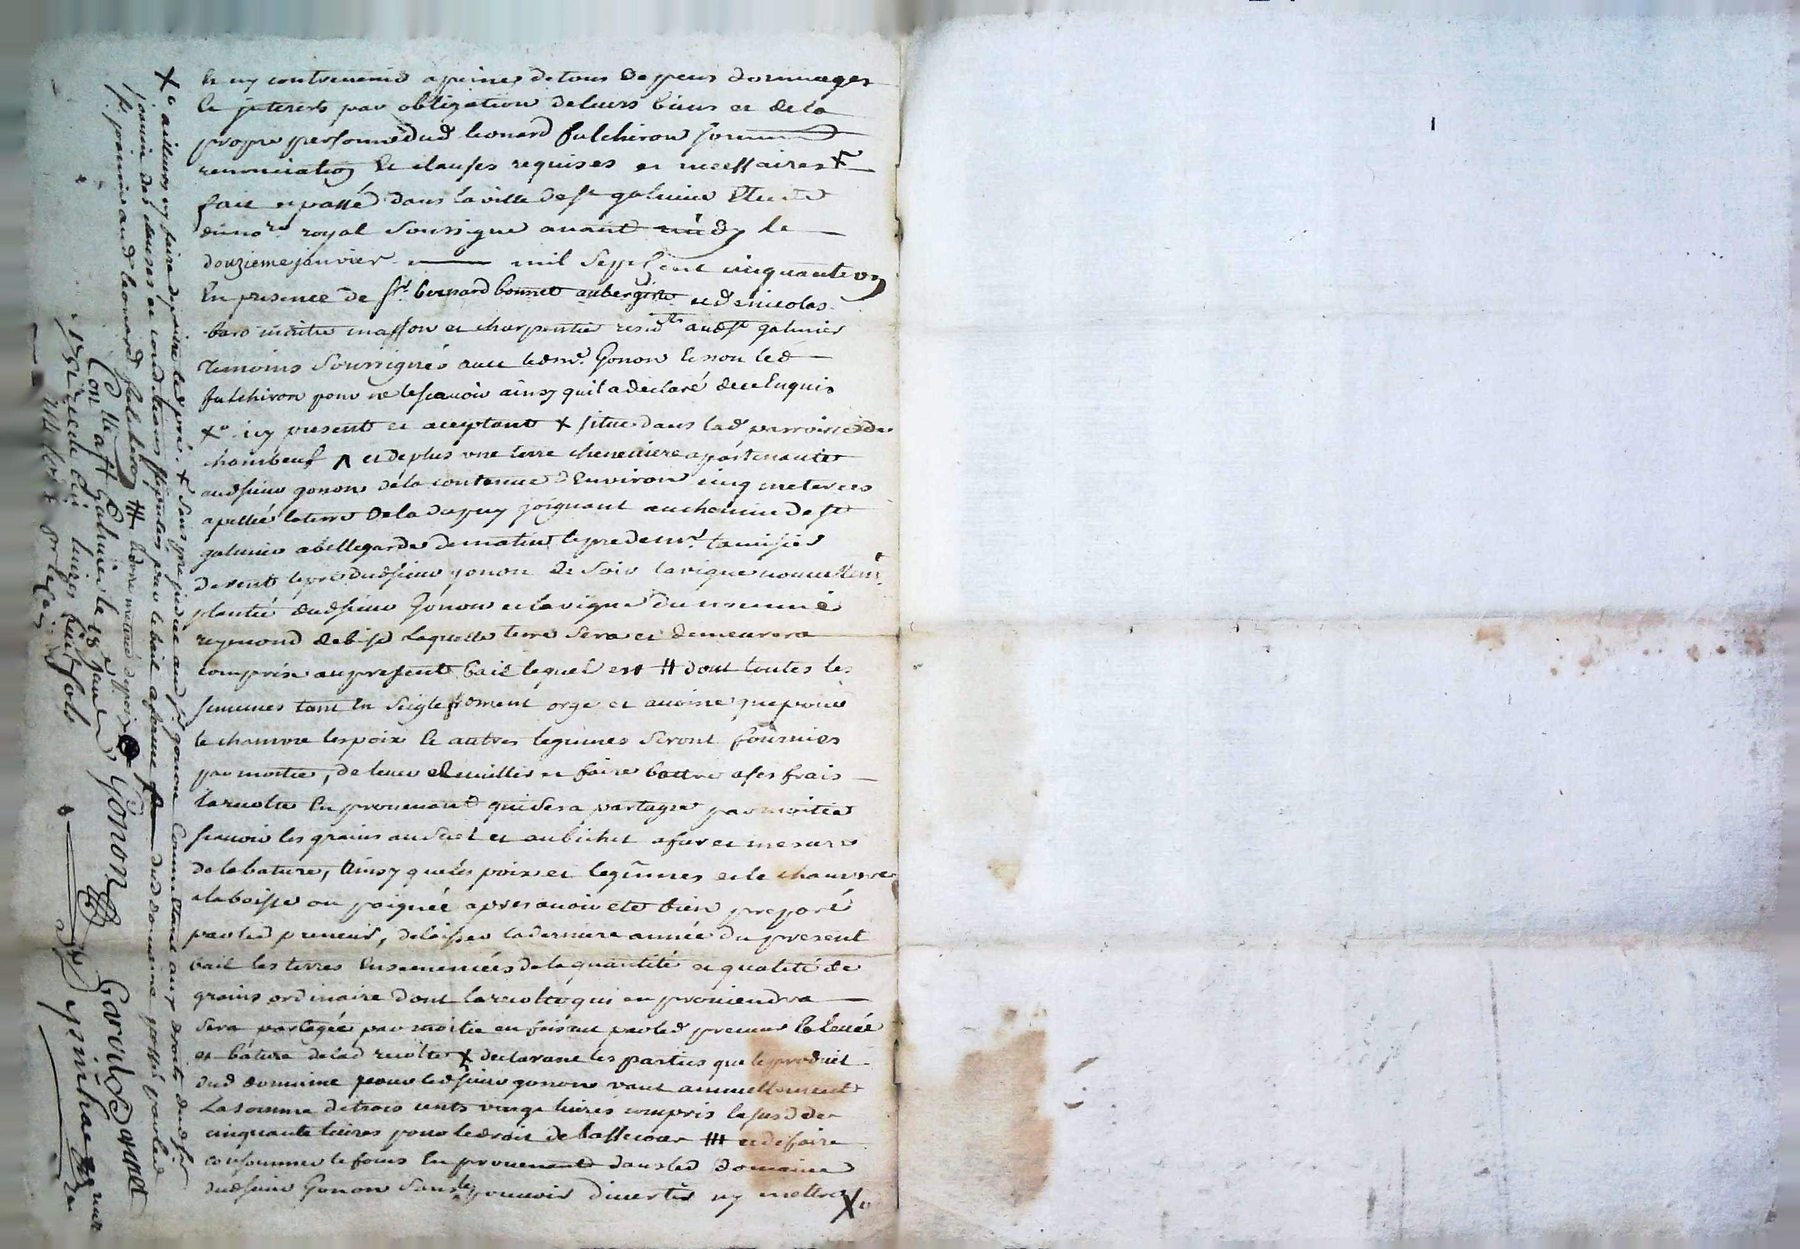 et ny contrevenir a peines de tous depens dommages
et interets par obligation de leurs biens et de la
propre personne dud leonard fulchiron
renonciation et clauses requises et necessaires
fait et passé dans la ville de st galmier Etude
du nore royal soussigne avant midy le
douzieme janvier mil sept cent cinquante un
En presence de sr bernard bonnet aubergiste et de nicolas
maitre masson et charpentier residts aud st galmier
temoins soussignés avec led sr Gonon et non led
fulchiron pour ne le scavoir ainsy quil a declaré de ce Enquis
icy present et aceptant x situe dans lad parroisse de
chambeuf et de plus une terre cheneviere apartenante
aud sieur gonon de la contenue d'Environ cinq meterees
apellée la terre joignant au chemin de st
galmier a bellegarde de matin le pre de mr
de vent le pré dud sieur gonon de soir la vigne nouvellemt
plantée dud sieur Gonon et la vigne du nommé
reymond de bise laquelle terre sera et demeurera
comprise au present bail lequel est # dont toutes les
semences tant en seigle froment orge et avoine que pour
le chanvre les poix et autres legumes seront fournies
par moitié, de leur cueillir et faire battre a ses frais
la recolte En provenant qui sera partagée par moitié
scavoir les grains au suel et au bichet a fur et mesure
de la bature, Ainsy que les poix et legumes et le chanvre
a la boisse ou poignée apres avoir eté bien preparé
par led preneur, de laisser la derniere année du present
bail les terres Ensemencées de la quantité et qualité de
grains ordinaire dont la recolte qui en proviendra
sera partagée par moitie en faisant par led preneur la levée
et bature de lad recolte x declarant les parties que le produit
dud domaine pour led sieur gonon vaut annuellement
La somme de trois cents vingt livres compris le susd de
cinquante livres pour le droit de et de faire
consommer le foins En provenant dans led domaine
dud sieur Gonon sans le pouvoir divertir ny mettre
x ailleurs ny faire depaitre led pré. x sans prejudice aud sr gonon Comme dans aux droits dud sr
des clauses et conditions stipulées par le bail a ferme dud domaine passé par led
sr aud leonard fulchiron #
Gonon
Bonnet
Conllé a st Galmier le 18 Janr
1751 recu livres huit sols